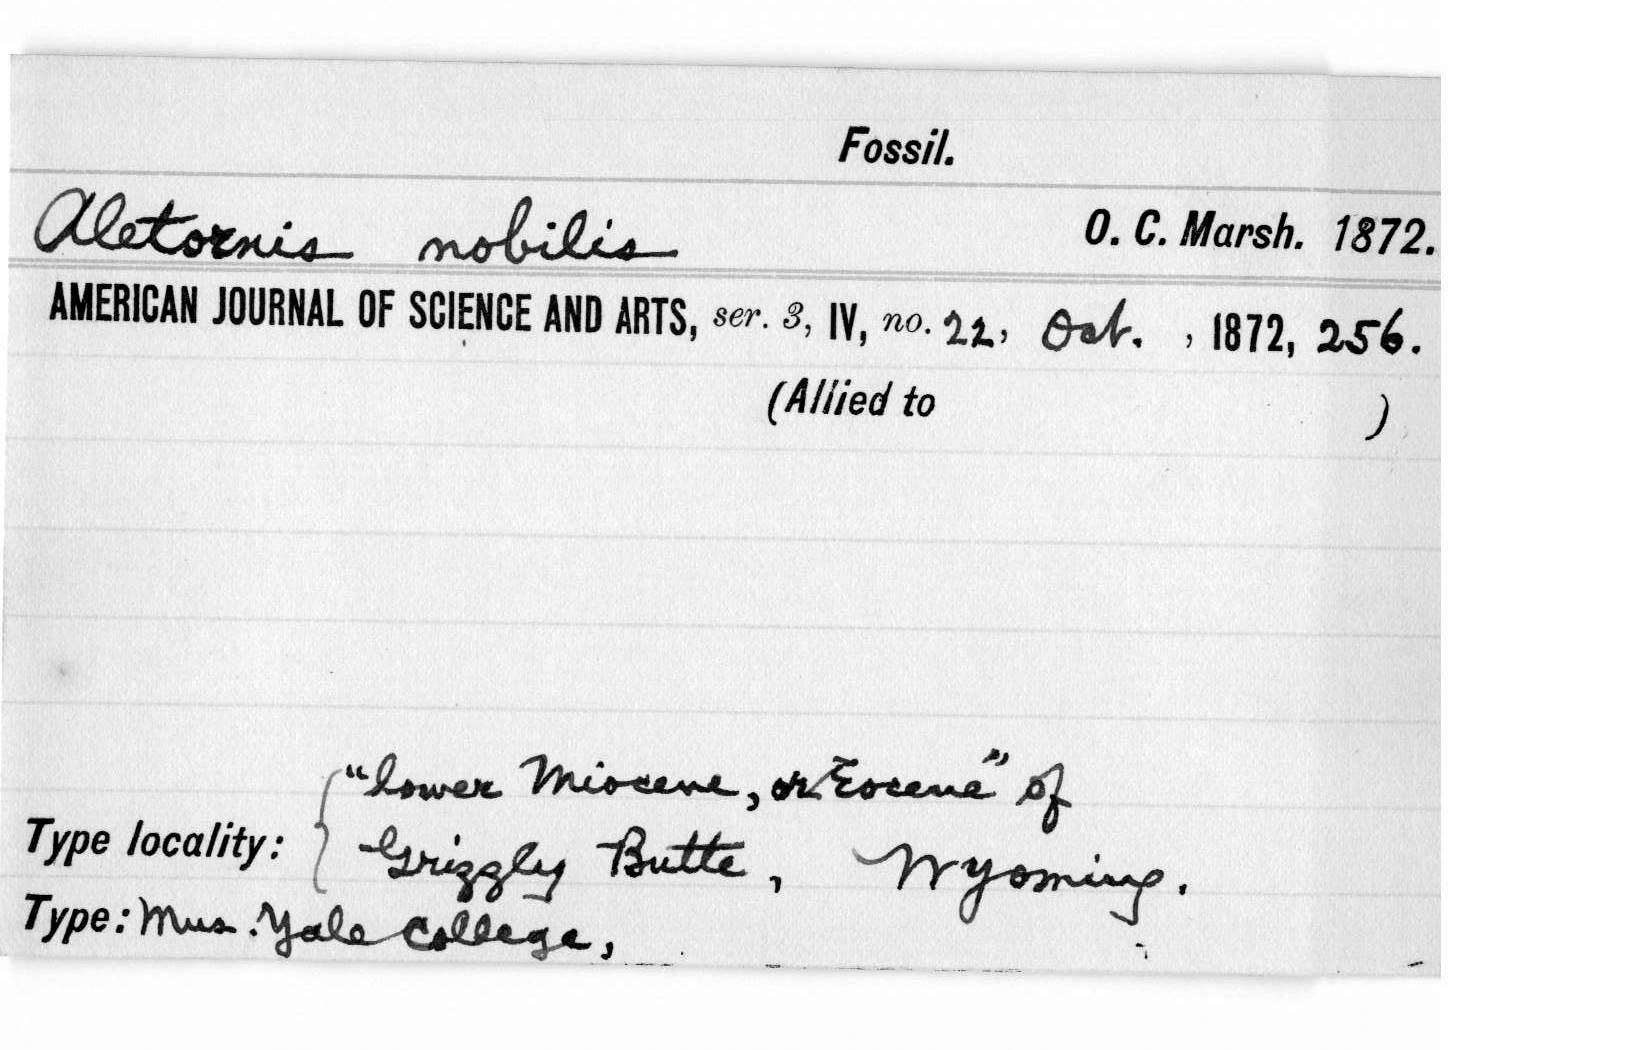 Fossil.
Aletornis nobilis O. C. Marsh. 1872.
AMERICAN JOURNAL OF SCIENCE AND ARTS, ser. 3, IV, no. 22, Oct. , 1872, 256.
(Allied to )
"Lower Miocene, or Eocene" of
Type locality: Grizzly Butte, Wyoming.
Type: Mus. Yale College,